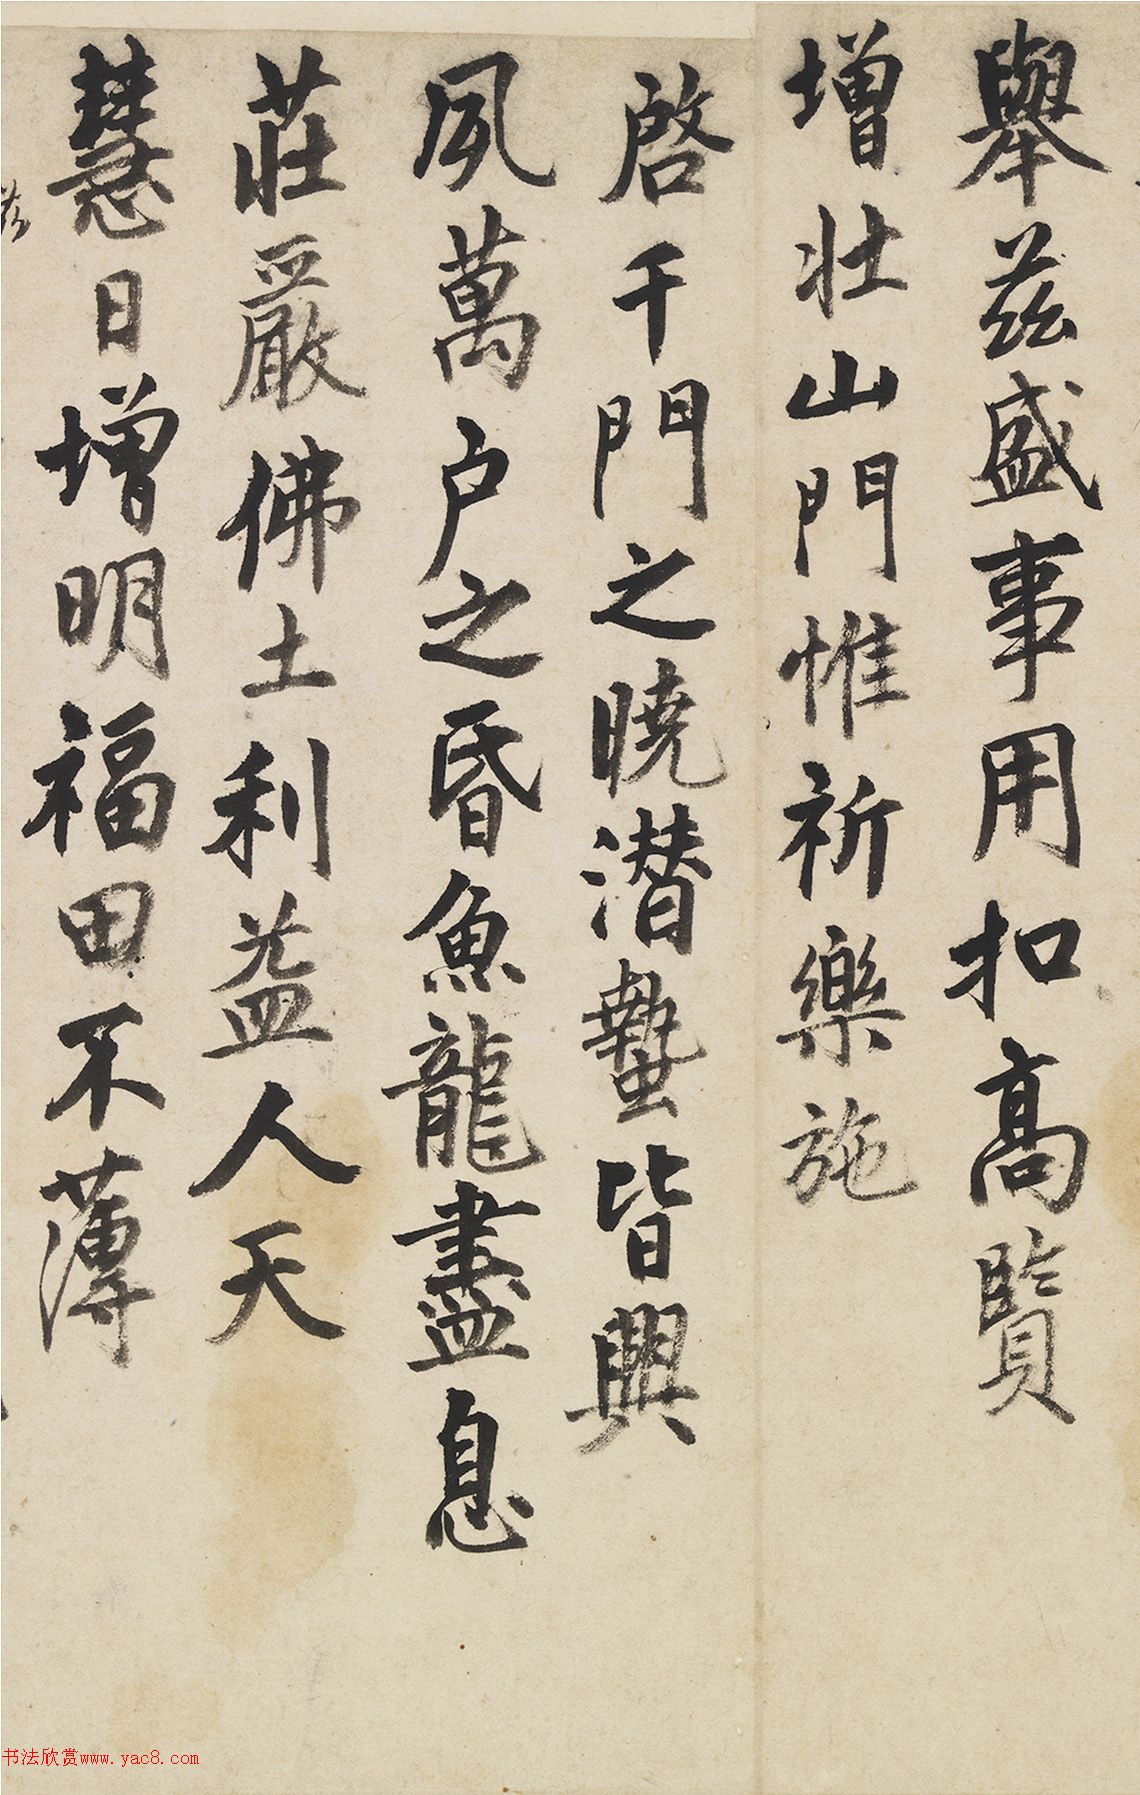 舉兹盛事用扣高覽
增壯山門惟祈樂施
啓千門之曉潜蟄皆興
夙萬户之昏魚龍盡息
莊嚴佛土利益人天
慧日增明福田不薄
书法欣赏www.yac8.com